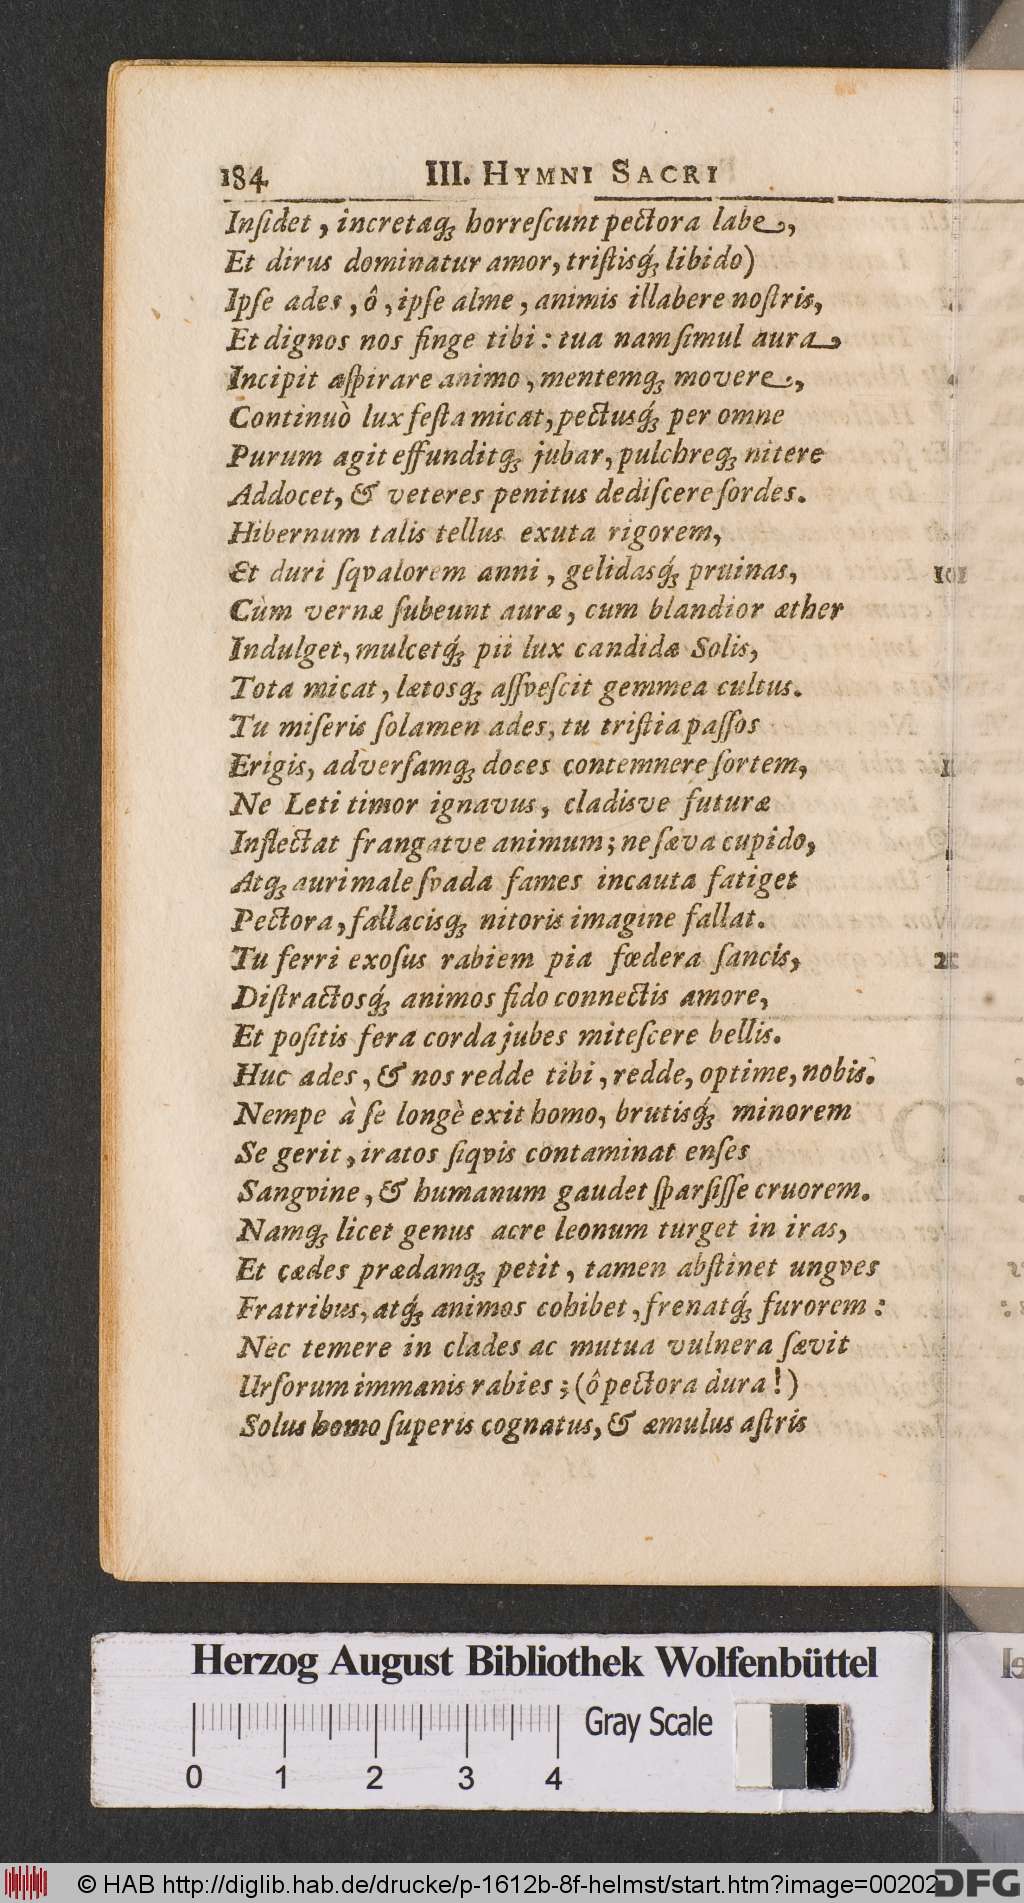 184 III. HYMNI SACRI
Inſidet, incretaq́ꝫ horreſcunt pectora labe,
Et dirus dominatur amor, triſtisq́ꝫ libido)
Ipſe ades, ô, ipſe alme, animis illabere noſtris,
Et dignos nos finge tibi: tua nam ſimul aura
Incipit aſpirare animo, mentemqꝫ movere,
Continuò lux feſta micat, pectusq́ꝫ per omne
Purum agit effunditqꝫ jubar, pulchreqꝫ nitere
Addocet, & veteres penitus dediſcere ſordes.
Hibernum talis tellus exuta rigorem,
Et duri ſqvalorem anni, gelidasq́ꝫ pruinas,
Cùm vernæ ſubeunt auræ, cum blandior æther
Indulget, mulcetq́ꝫ pii lux candida Solis,
Tota micat, lætosqꝫ aſſveſcit gemmea cultus.
Tu miſeris ſolamen ades, tu triſtia paſſos
Erigis, adverſamqꝫ doces contemnere ſortem,
Ne Leti timor ignavus, cladisve futuræ
Inflectat frangatve animum; ne ſæva cupido,
Atqꝫ auri male ſvada fames incauta fatiget
Pectora, fallacisqꝫ nitoris imagine fallat.
Tu ferri exoſus rabiem pia fœdera ſancis,
Diſtractosq́ꝫ animos fido connectis amore,
Et poſitis fera corda jubes miteſcere bellis.
Huc ades, & nos redde tibi, redde, optime, nobis.
Nempe à ſe longè exit homo, brutisq́ꝫ minorem
Se gerit, iratos ſiqvis contaminat enſes
Sangvine, & humanum gaudet ſparſiſſe cruorem.
Namqꝫ licet genus acre leonum turget in iras,
Et cædes prædamqꝫ petit, tamen abſtinet ungves
Fratribus, atq́ꝫ animos cohibet, frenatq́ꝫ furorem:
Nec temere in clades ac mutua vulnera ſævit
Urſorum immanis rabies; (ô pectora dura!)
Solus homo ſuperis cognatus, & æmulus aſtris
Herzog August Bibliothek Wolfenbüttel
Gray Scale
0 1 2 3 4
© HAB http://diglib.hab.de/drucke/p-1612b-8f-helmst/start.htm?image=00202
DFG